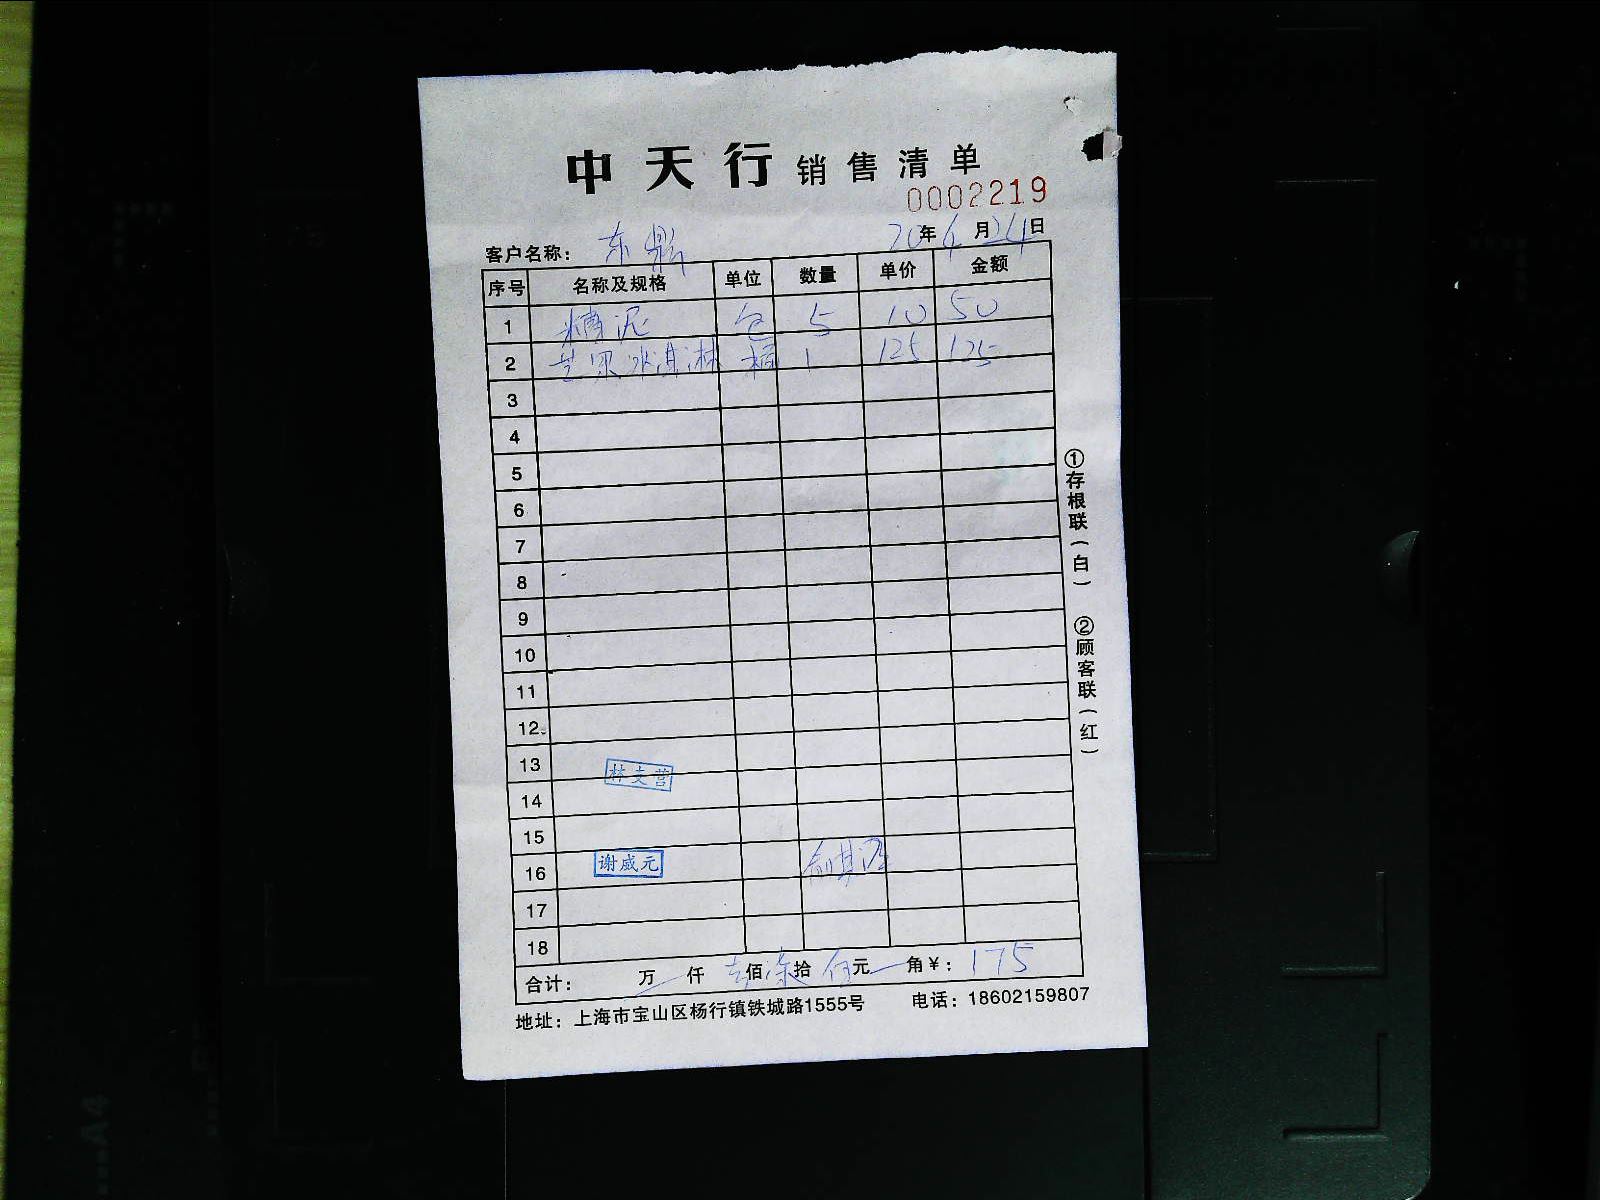 中天行 销售清单
0002219
客户名称： 东鼎 20年6月24日
序号 名称及规格 单位 数量 单价 金额
1 糯泥 包 5 10 50
2 芒果冰淇淋 桶 1 125 125
3
4
5
6
7
8
9
10
11
12
13
林支营
14
15
16 谢威元
17
18
合计： 万 仟 壹佰柒拾伍元 角￥：175
地址：上海市宝山区杨行镇铁城路1555号 电话：18602159807
①存根联（白） ②顾客联（红）
A4